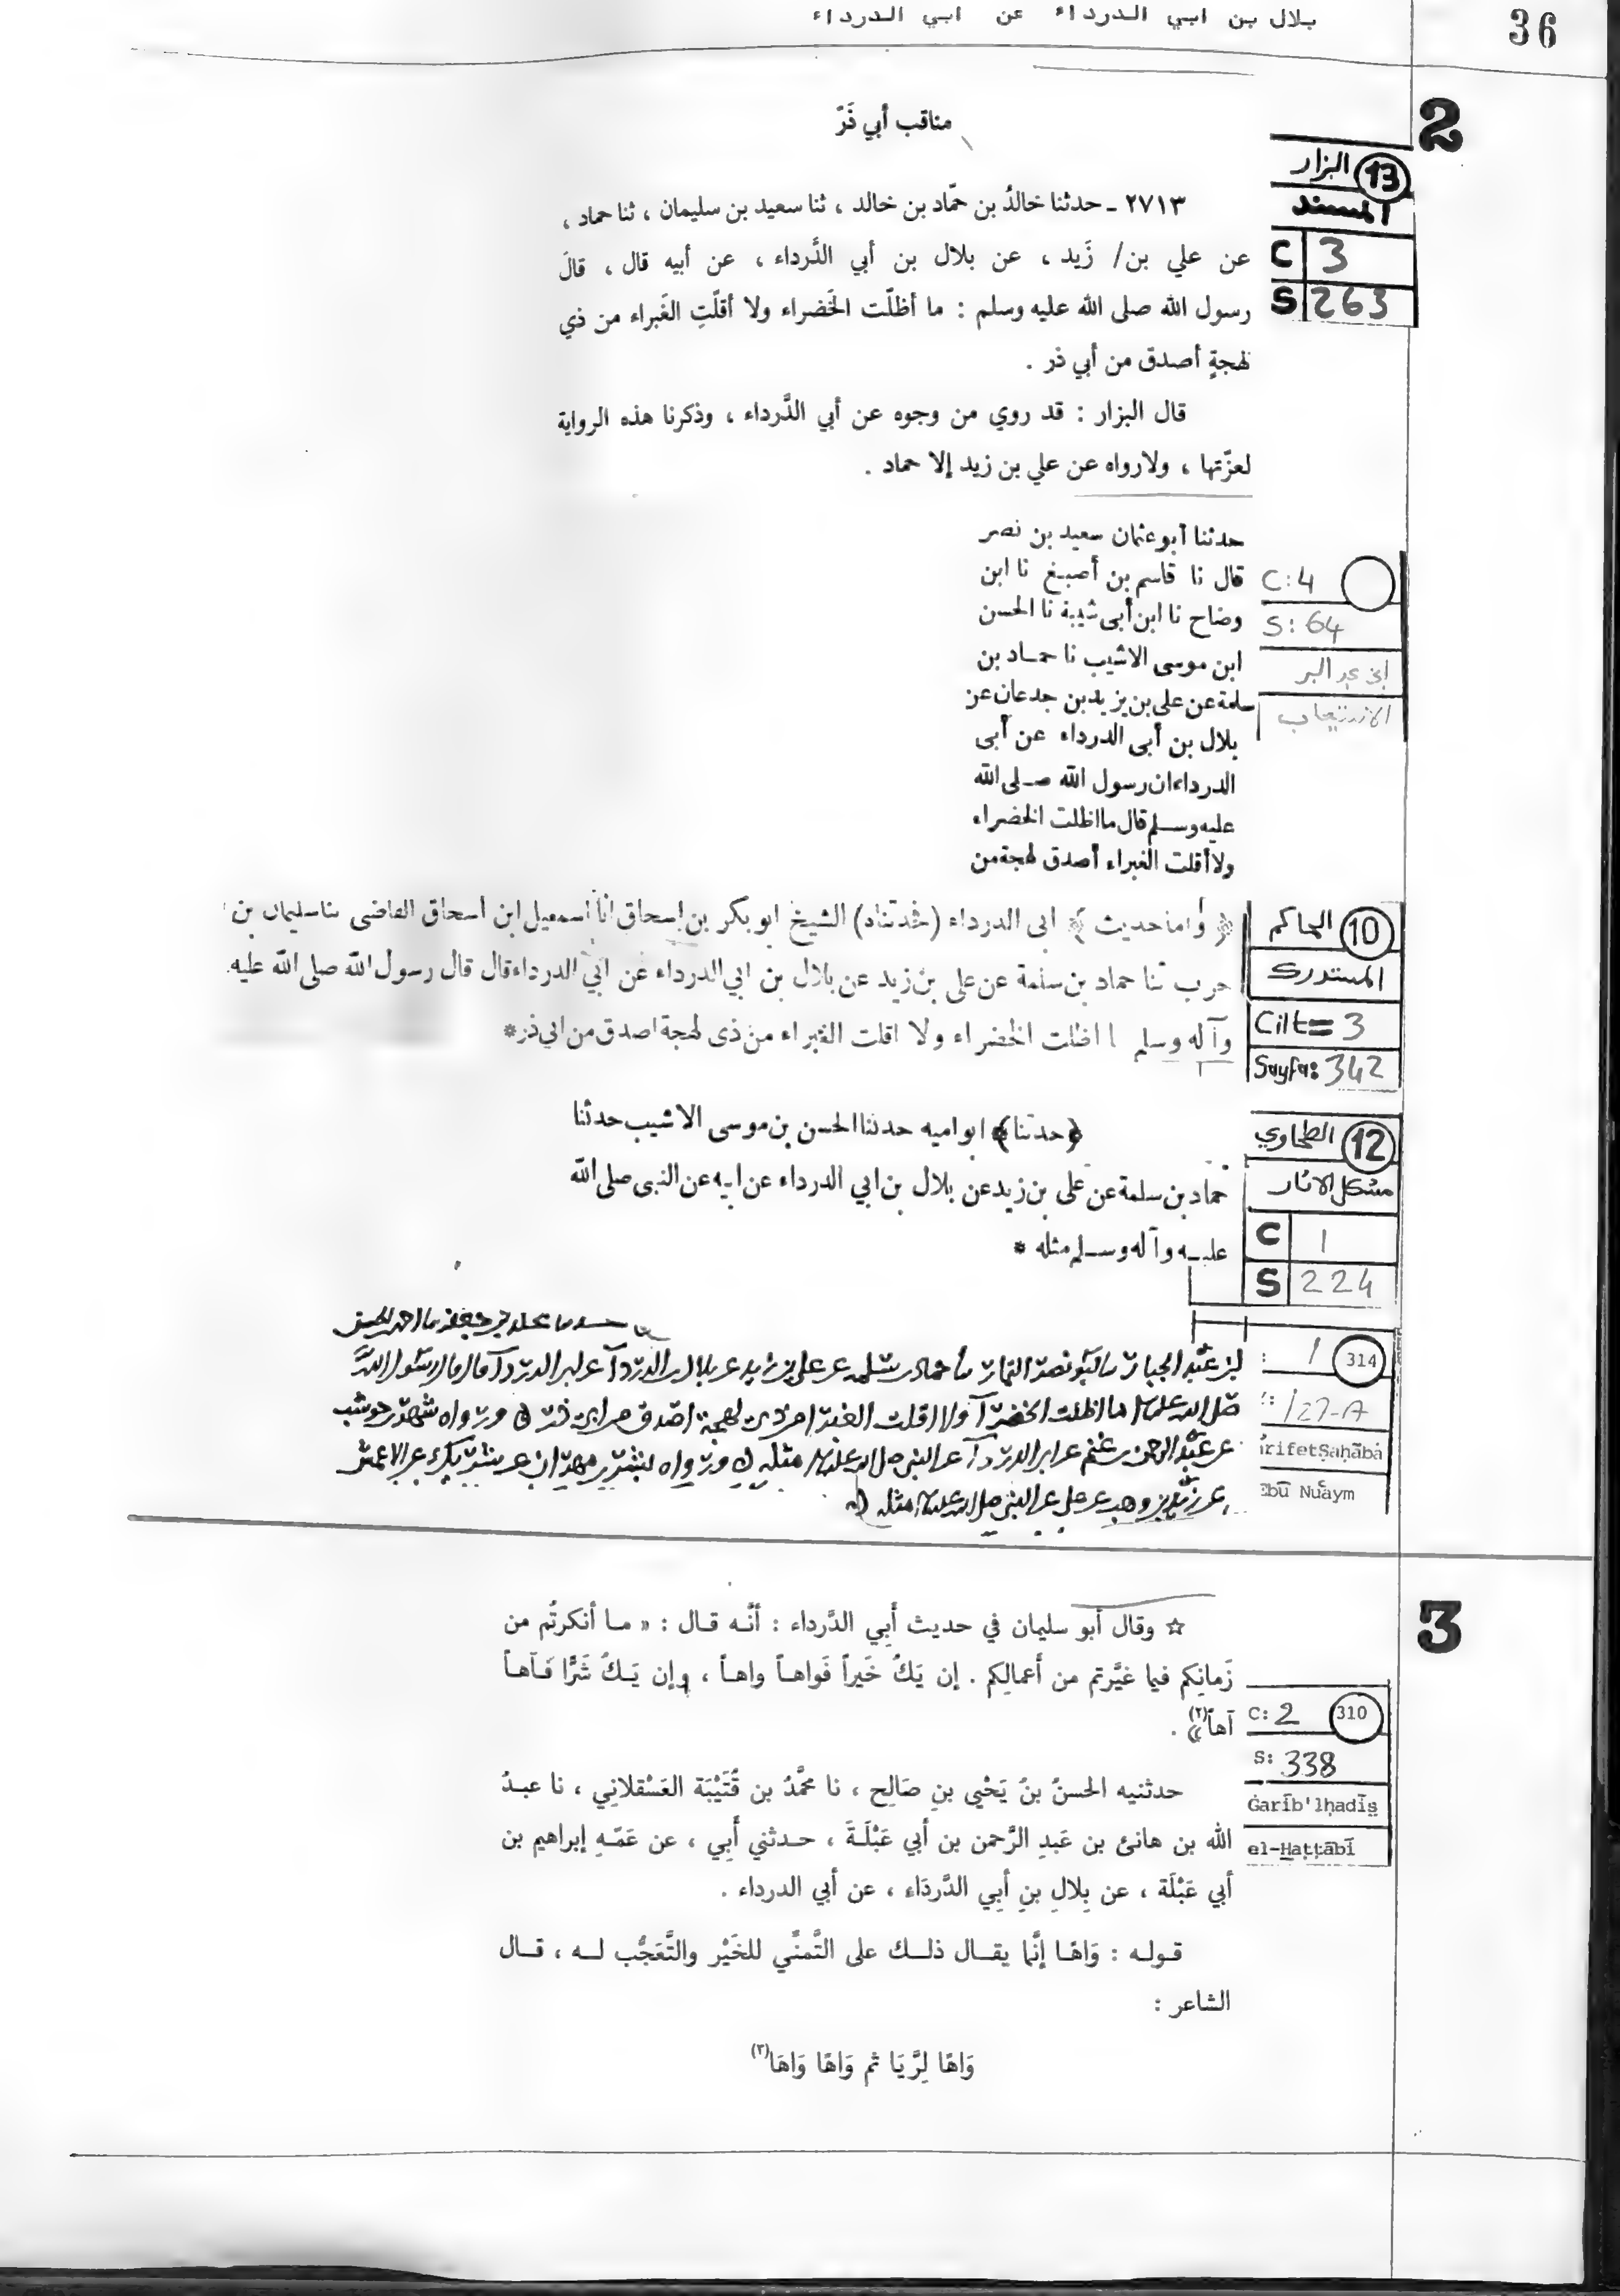 بلال بن ابي الدرداء عن ابي الدرداء
36
2
مناقب أبي ذَرّ
13 البزار
المسند
C 3
S 263
٢٧١٣ ـ حدثنا خالدُ بن حمّاد بن خالد ، ثنا سعيد بن سليمان ، ثنا حماد ،
عن علي بن/ زَيد ، عن بلال بن أبي الدَّرداء ، عن أبيه قال ، قالَ
رسول الله صلى الله عليه وسلم : ما أظلّت الخَضراء ولا أقلّتِ الغَبراء من ذي
لهجةٍ أصدق من أبي ذر .
قال البزار : قد روي من وجوه عن أبي الدَّرداء ، وذكرنا هذه الرواية
لعزّتها ، ولا رواه عن علي بن زيد إلا حماد .
C:4
S:64
ابن عبد البر
الاستيعاب
حدثنا أبو عثمان سعيد بن نصر
قال نا قاسم بن أصبغ نا ابن
وضاح نا ابن أبى شيبة نا الحسن
ابن موسى الاشيب نا حماد بن
سلمة عن على بن يزيد بن جدعان عن
بلال بن أبى الدرداء عن أبى
الدرداء ان رسول الله صلى الله
عليه وسلم قال ما اظلت الخضراء
ولا أقلت الغبراء أصدق لهجة من
10 الحاكم
المستدرك
Cilt= 3
Sayfa: 342
﴿ واما حديث ﴾ ابى الدرداء (فحدثناه) الشيخ ابو بكر بن إسحاق انا اسمعيل ابن اسحاق القاضى ثنا سليمان بن
حرب ثنا حماد بن سلمة عن على بن زيد عن بلال بن ابي الدرداء عن ابي الدرداء قال قال رسول الله صلى الله عليه
وآله وسلم ما اظلت الخضراء ولا اقلت الغبراء من ذى لهجة اصدق من ابي ذر*
12 الطحاوي
مشكل الآثار
C 1
S 224
﴿حدثنا﴾ ابو اميه حدثنا الحسن بن موسى الاشيب حدثنا
حماد بن سلمة عن على بن زيد عن بلال بن ابي الدرداء عن ابيه عن النبى صلى الله
عليه وآله وسلم مثله *
: 1 314
: 127-A
rifetṢaḥāba
Ebū Nuʿaym
حدثنا محمد بن جعفر ما احمد بن الحسن
بن عبد الجبار ما ابو نصر التمار ما حماد بن سلمه عن على بن زيد عن بلال بن ابى الدرداء عن ابى الدرداء قال قال رسول الله
صلى الله عليه وسلم ما اظلت الخضرا ولا اقلت الغبرا من ذى لهجة اصدق من ابى ذر ورواه شهر بن حوشب
عن عبد الرحمن بن غنم عن ابى الدرداء عن النبى صلى الله عليه وسلم مثله ورواه بشر بن مهران عن شريك عن الاعمش
عن زيد بن وهب عن على عن النبى صلى الله عليه وسلم مثله
3
☆ وقال أبو سليمان في حديث أبي الدَّرداء : أنّه قال : « ما أنكرتُم من
زَمانِكم فبما غيَّرتم من أعمالِكم . إن يَكُ خَيراً فَواهاً واهاً ، وإن يَكُ شَرًّا فَآهاً
آهاً(٢)» .
C: 2 310
S: 338
Ġarīb'lḥadīs̱
el-Ḫaṭṭābī
حدثنيه الحسنُ بنُ يَحْيى بنِ صَالِح ، نا محمَّدُ بن قُتَيْبَة العَسْقلانِي ، نا عبدُ
الله بن هانئ بن عَبدِ الرَّحمن بن أبي عَبْلَةَ ، حدثني أَبِي ، عن عَمّهِ إبراهيم بن
أبي عَبْلَة ، عن بِلالِ بنِ أَبِي الدَّردَاء ، عن أبي الدرداء .
قوله : وَاهًا إنَّما يقال ذلك على التَّمنِّي للخَيْر والتَّعَجُّب له ، قال
الشاعر :
وَاهًا لِرَّيَا ثم وَاهًا وَاهَا(٣)